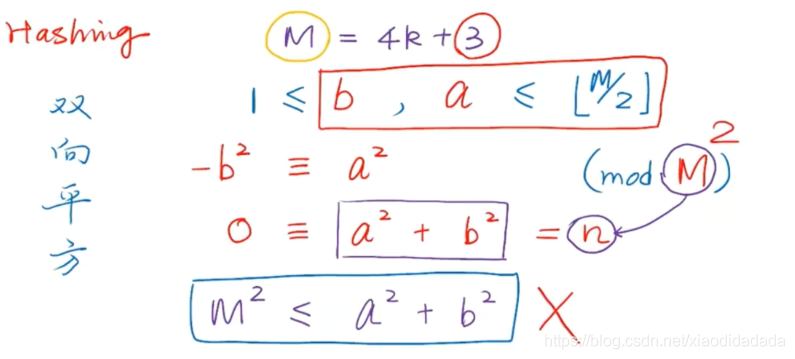 Hashing M = 4k + 3
双向平方
1 ≤ b , a ≤ ⌊M/2⌋
-b² ≡ a² (mod M)²
0 ≡ a² + b² = n
M² ≤ a² + b² X
https://blog.csdn.net/xiaodidadada